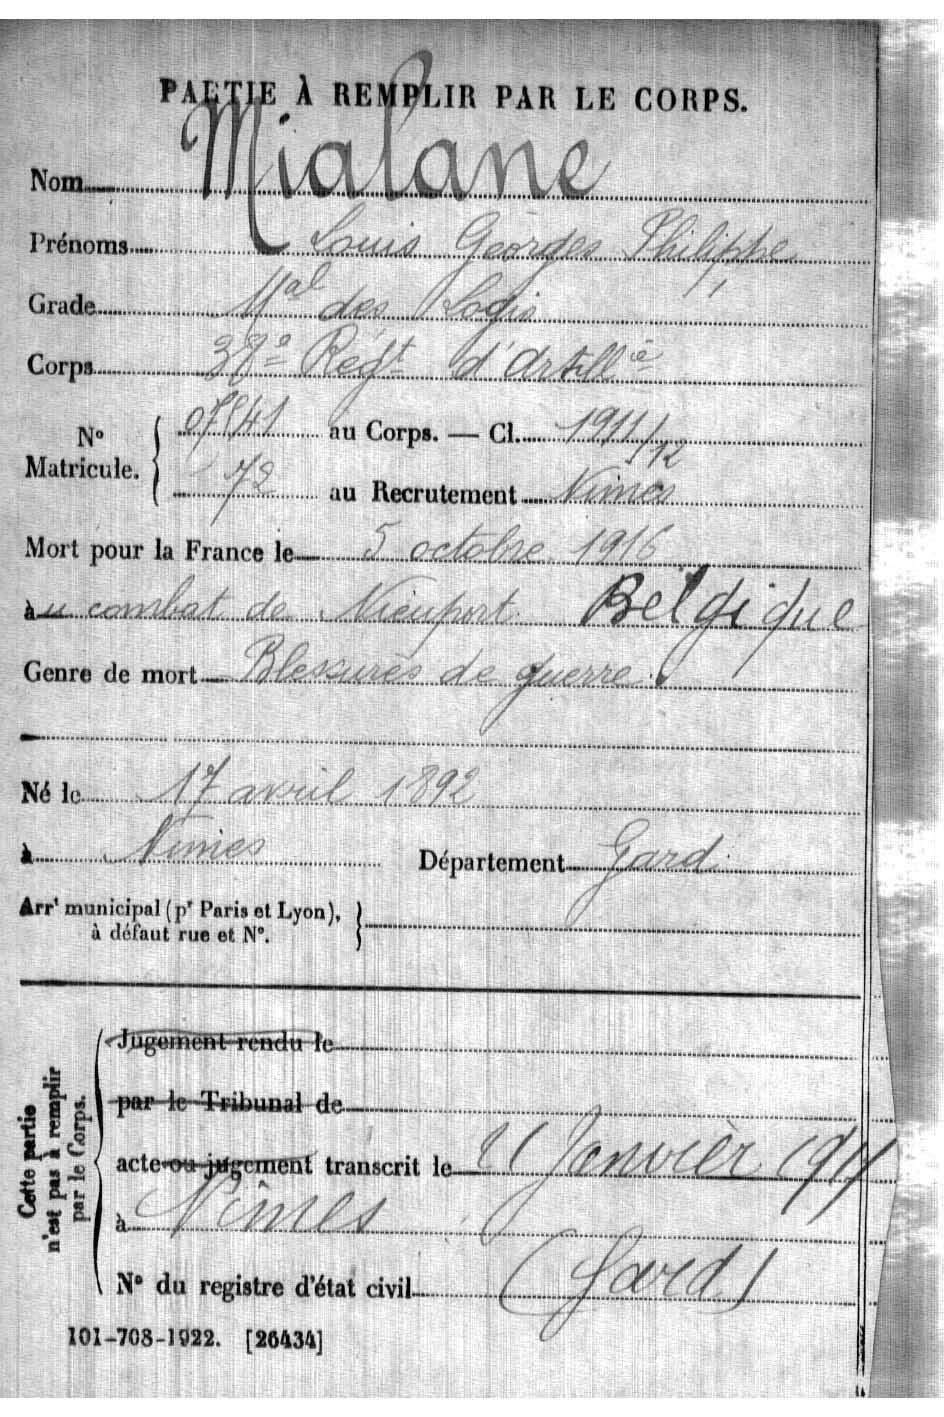 PARTIE À REMPLIR PAR LE CORPS.
Nom Mialane
Prénoms Louis Georges Philippe
Grade Mal des Logis
Corps 38e Régt d'Artillie
N° Matricule. { 07841 au Corps. — Cl. 1911/12
72 au Recrutement Nimes
Mort pour la France le 5 octobre 1916
au combat de Nieuport Belgique
Genre de mort Blessures de guerre
Né le 17 avril 1892
à Nimes Département Gard
Arrt municipal (pr Paris et Lyon), à défaut rue et N°.
Cette partie n'est pas à remplir par le Corps.
Jugement rendu le
par le Tribunal de
acte ou jugement transcrit le Janvier
à Nîmes
N° du registre d'état civil (Gard)
101-708-1922. [26434]